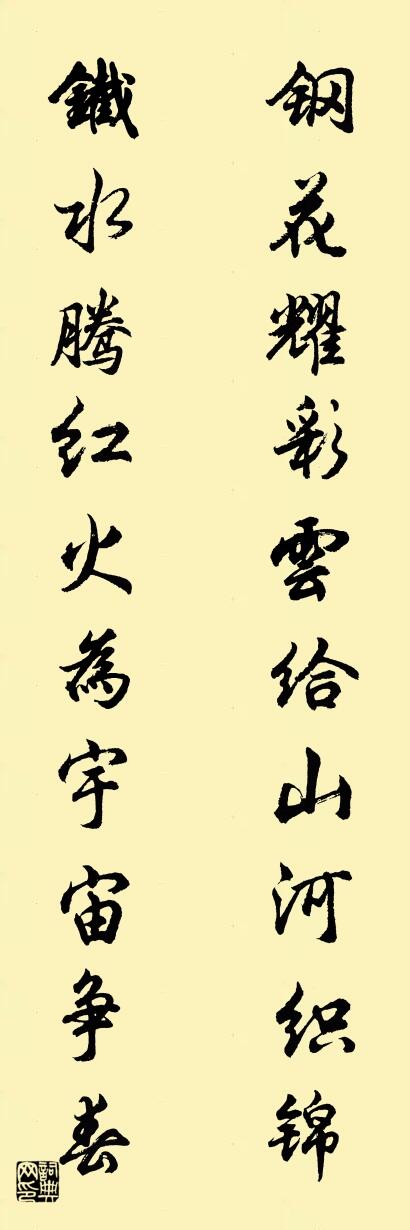 钢花耀彩雲给山河织锦
鐵水腾红火為宇宙争春
詞典网印